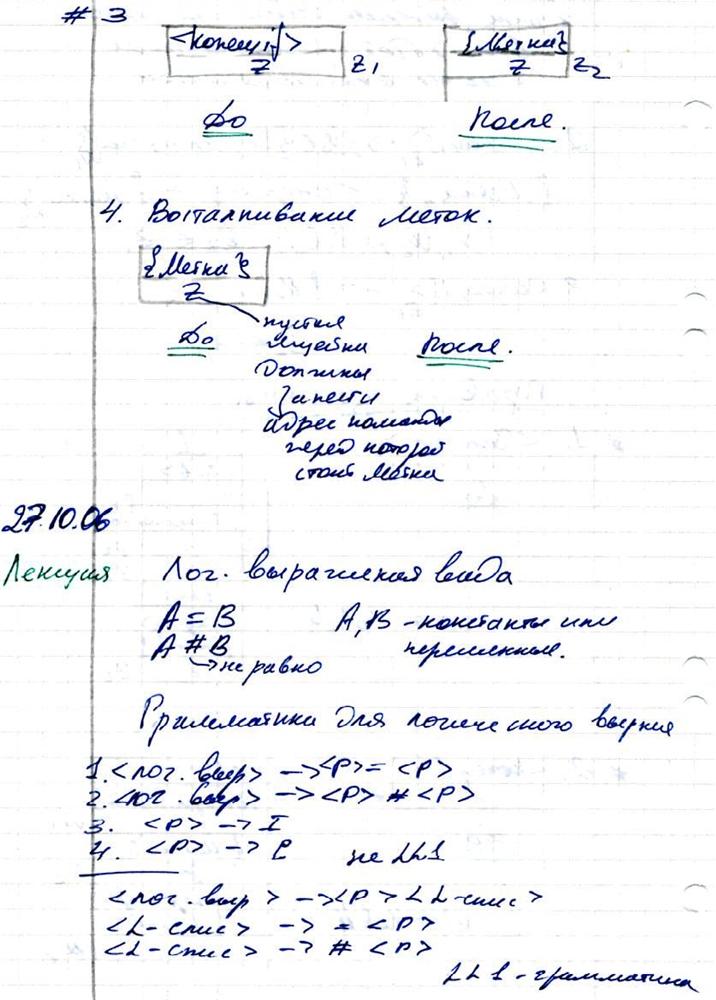 # 3
<конец if>
Z Z1
{Метка}
Z Z2
До После.
4. Выталкивание меток.
{Метка}
Z
До После.
пустая
ячейка
Должны
занести
адрес команды
перед которой
стоит метка
27.10.06
Лекция Лог. выражения вида
A = B A, B - константы или
A # B переменные.
→ не равно
Грамматика для
1. <лог. выр> → <P> = <P>
2. <лог. выр> → <P> # <P>
3. <P> → I
4. <P> → C не LL1
<лог. выр> → <P> <L-спис>
<L-спис> → = <P>
<L-спис> → # <P>
LL1 - грамматика